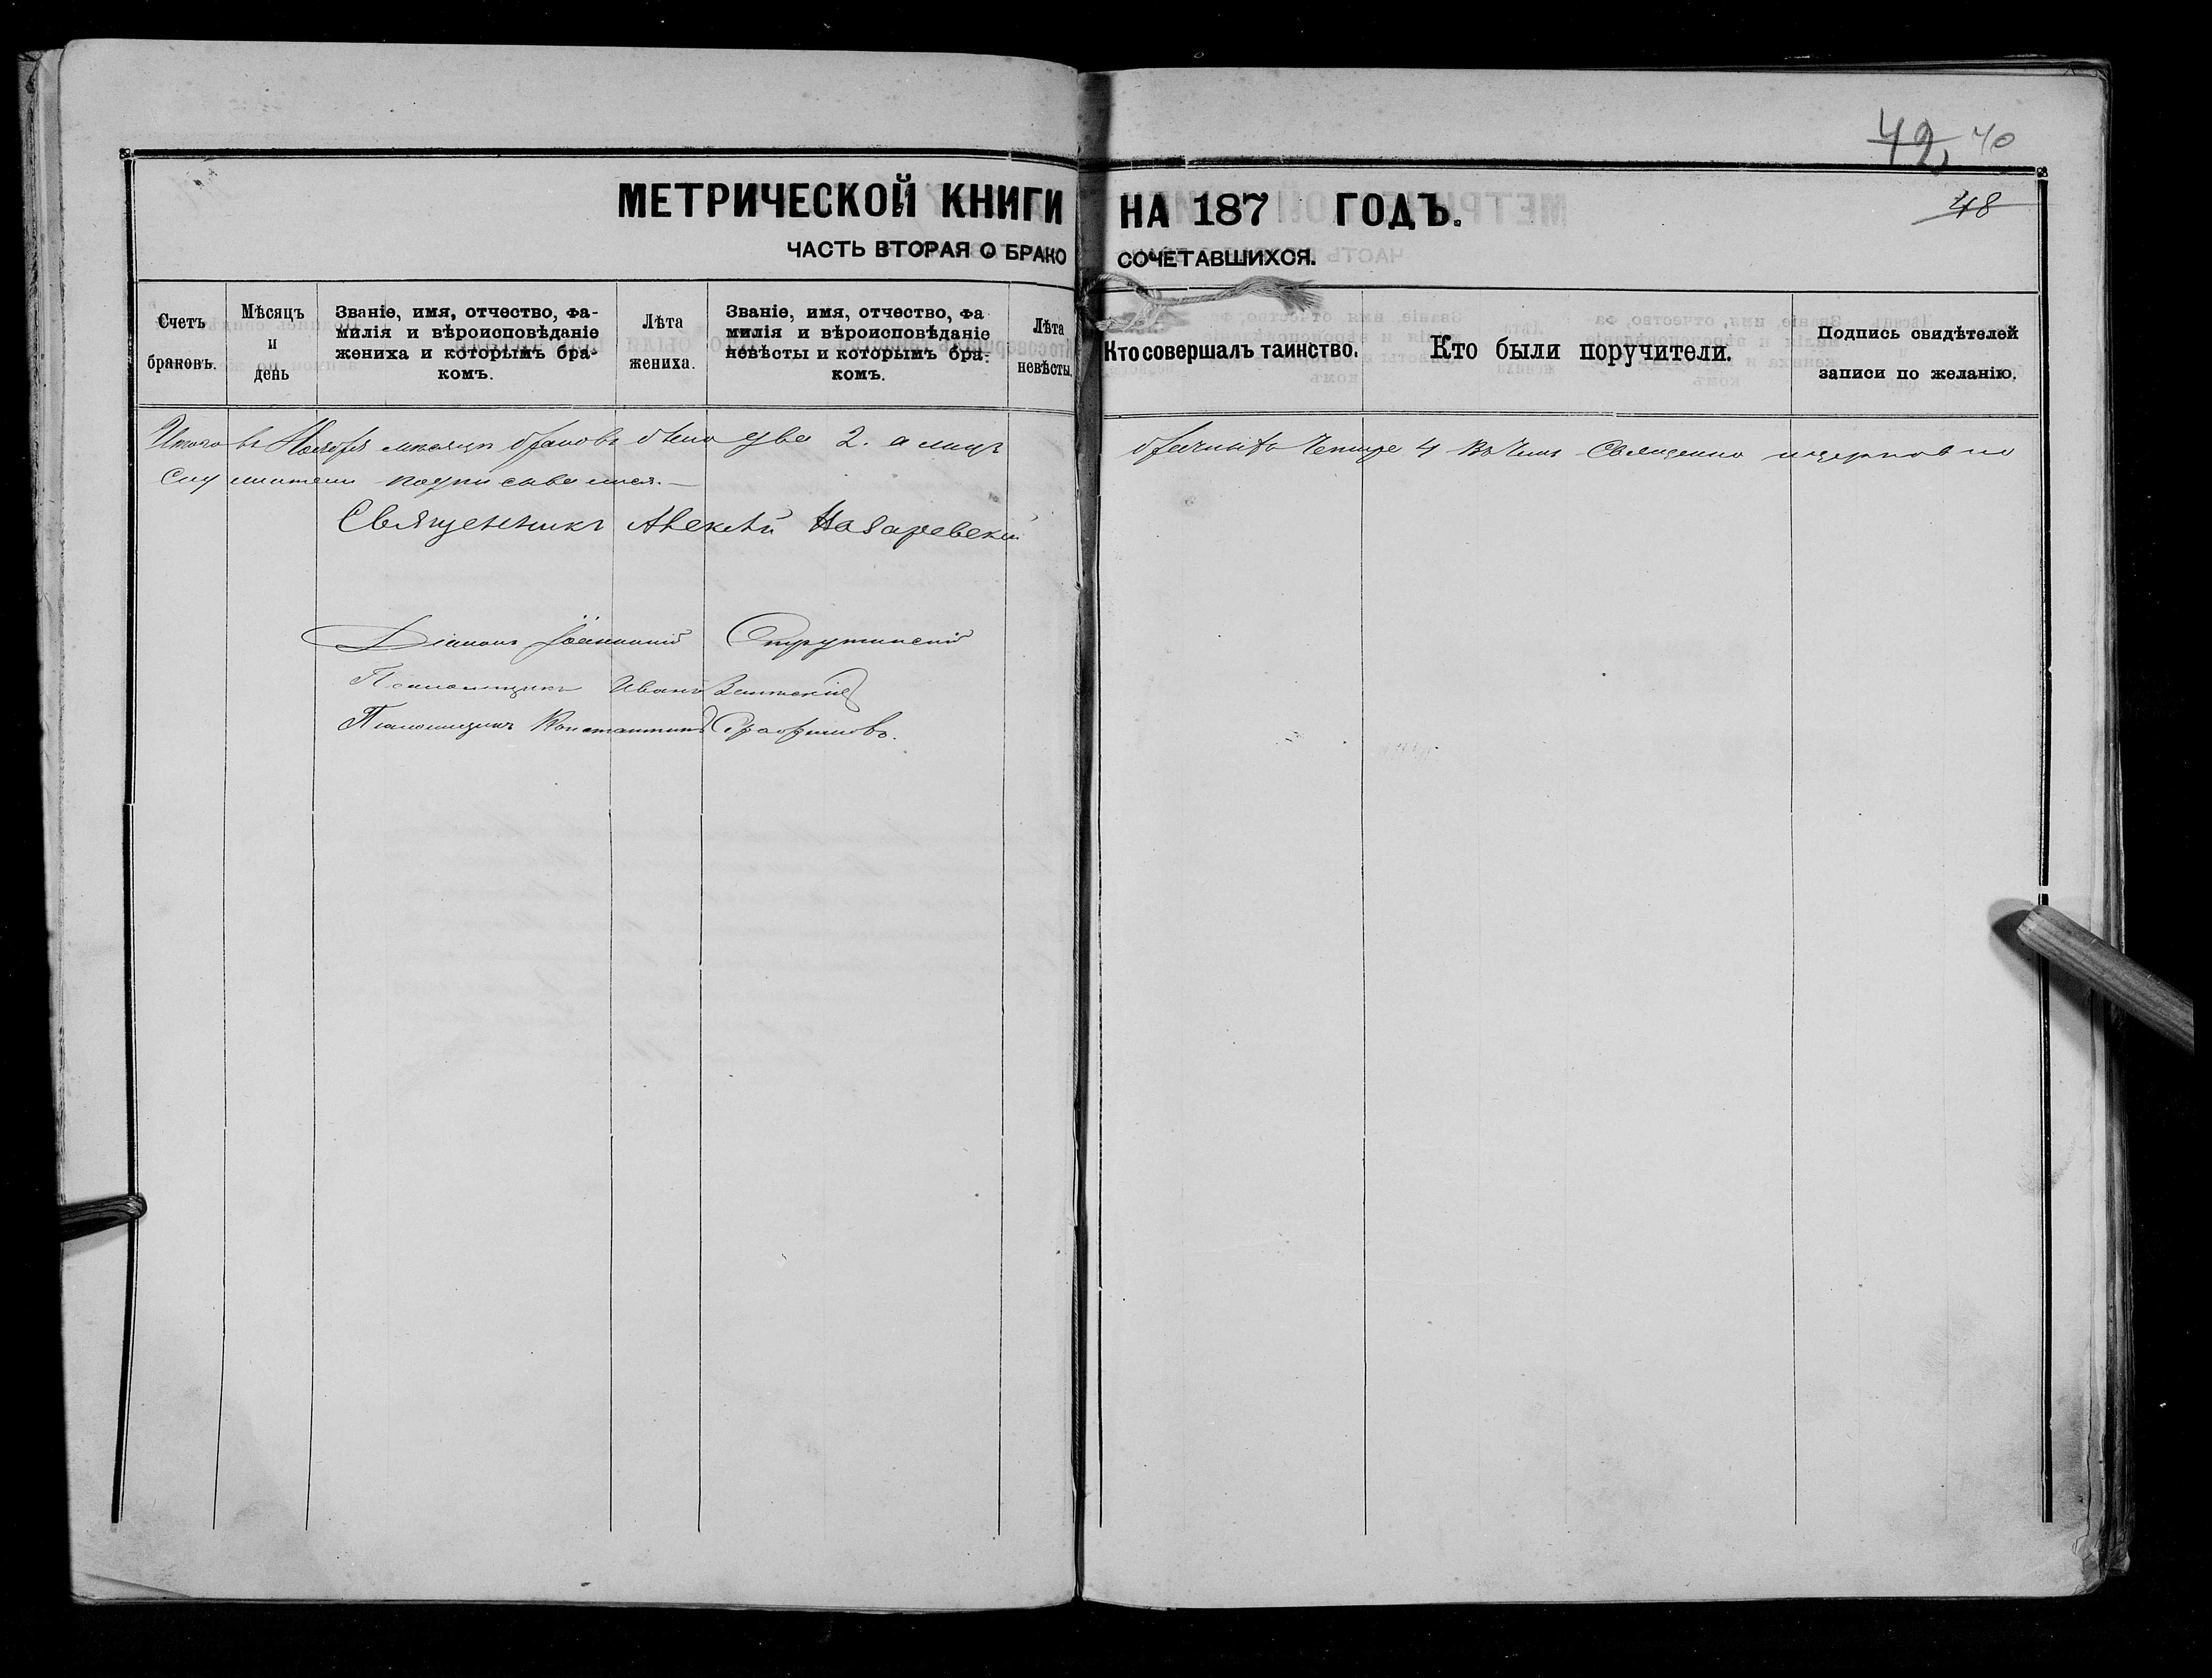 42, 40
МЕТРИЧЕСКОЙ КНИГИ НА 187 ГОДЪ.
48
ЧАСТЬ ВТОРАЯ О БРАКО СОЧЕТАВШИХСЯ.
Счетъ
браковъ.
Мѣсяцъ
и
день
Званіе, имя, отчество, фа-
милія и вѣроисповѣданіе
жениха и которымъ бра-
комъ.
Лѣта
жениха.
Званіе, имя, отчество, фа
милія и вѣроисповѣданіе
невѣсты и которымъ бра-
комъ.
Лѣта
невѣсты.
Кто совершалъ таинство.
Кто были поручители.
Подпись свидѣтелей
записи по желанію.
Итого въ Ноябрѣ мѣсяцѣ браковъ было два 2. а лицъ брачныхъ четыре 4 въ чемъ Священно и церковно
служители подписались.—
Священникъ Алексѣй Назаревскій
Діаконъ Іоанникій Струтинскій
Псаломщикъ Иванъ
Псаломщикъ Константинъ